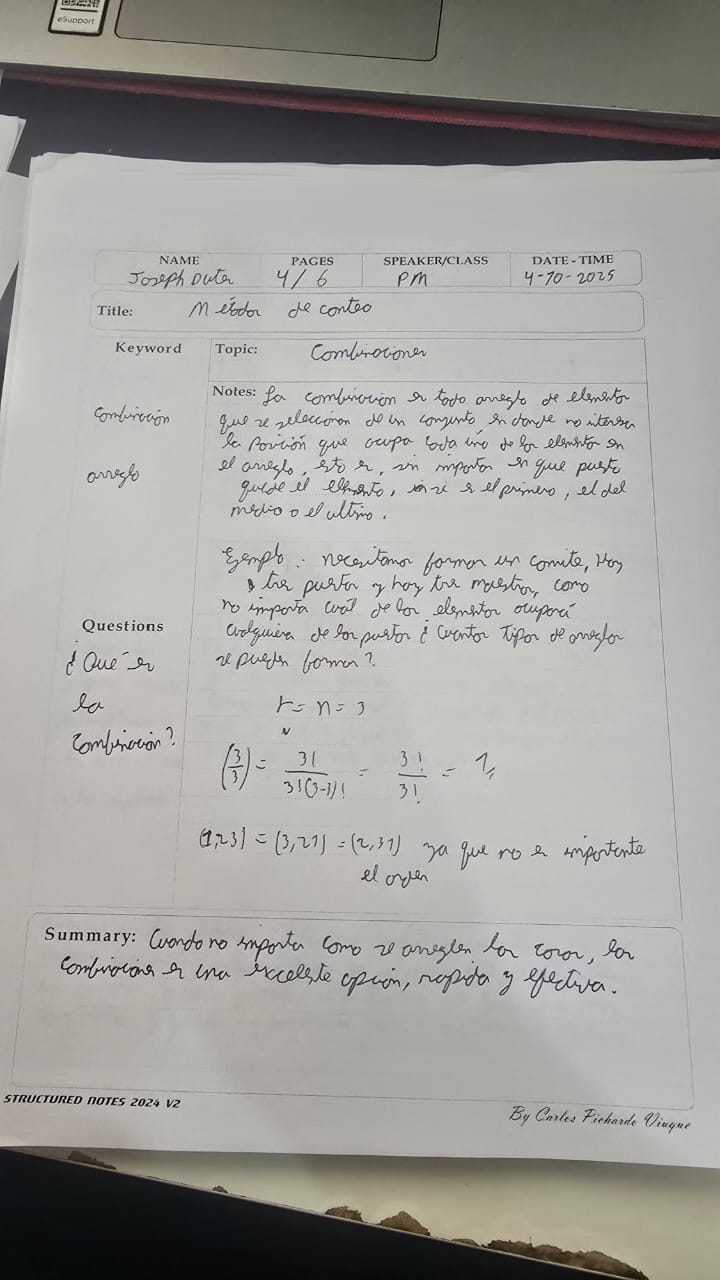 eSupport
NAME PAGES SPEAKER/CLASS DATE - TIME
Joseph 4/6 PM 4-10-2025
Title: Métodos de conteo
Keyword Topic: Combinaciones
Notes: La combinación es todo arreglo de elementos
combinación que se seleccionan de un conjunto en donde no interesa
la posición que ocupa cada uno de los elementos en
arreglo el arreglo, esto es, sin importar en que puesto
quede el elemento, si es el primero, el del
medio o el ultimo.
Ejemplo: necesitamos formar un comite, Hay
tres puestos y hay tres maestros, como
no importa cuál de los elementos ocupará
Questions cualquiera de los puestos ¿Cuantos tipos de arreglos
¿Qué es se pueden formar?
la r = n = 3
combinación? (3/3) = 3!/3!(3-3)! = 3!/3! = 1
(1,2,3) = (3,2,1) = (2,3,1) ya que no es importante
el orden
Summary: Cuando no importa como se arreglen las cosas, las
combinaciones es una excelente opción, rapida y efectiva.
STRUCTURED NOTES 2024 V2
By Carlos Pichardo Viuque